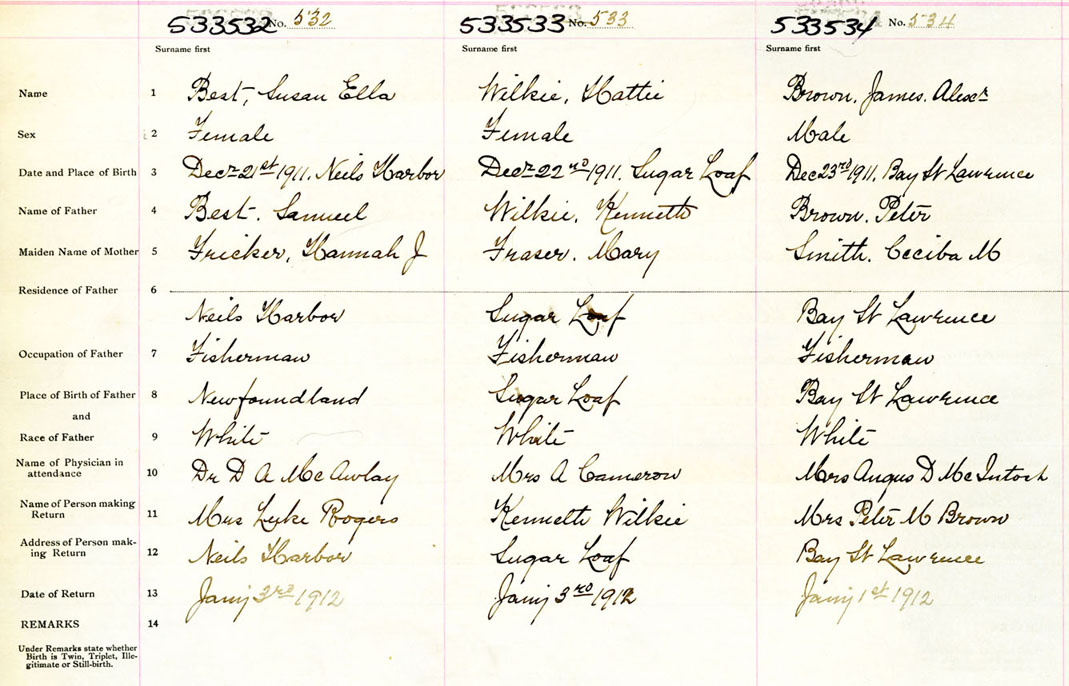 533532 No. 532 533533 No. 533 533534 No. 534
Surname first Surname first Surname first
Name 1 Best, Susan Ella Wilkie, Hattie Brown, James. Alexr
Sex 2 Female Female Male
Date and Place of Birth 3 Decr 21st 1911. Neils Harbor Decr 22nd 1911. Sugar Loaf Dec 23rd 1911. Bay St Lawrence
Name of Father 4 Best. Samuel Wilkie, Kenneth Brown. Peter
Maiden Name of Mother 5 Fricker, Hannah J Fraser. Mary Smith. Ceciba M
Residence of Father 6
Neils Harbor Sugar Loaf Bay St Lawrence
Occupation of Father 7 Fisherman Fisherman Fisherman
Place of Birth of Father 8 Newfoundland Sugar Loaf Bay St Lawrence
and
Race of Father 9 White White White
Name of Physician in
attendance 10 Dr D A McAwlay Mrs A Cameron Mrs Angus D McIntosh
Name of Person making
Return 11 Mrs Luke Rogers Kenneth Wilkie Mrs Peter M Brown
Address of Person mak-
ing Return 12 Neils Harbor Sugar Loaf Bay St Lawrence
Date of Return 13 Jany 3rd 1912 Jany 3rd 1912 Jany 1st 1912
REMARKS 14
Under Remarks state whether
Birth is Twin, Triplet, Ille-
gitimate or Still-birth.